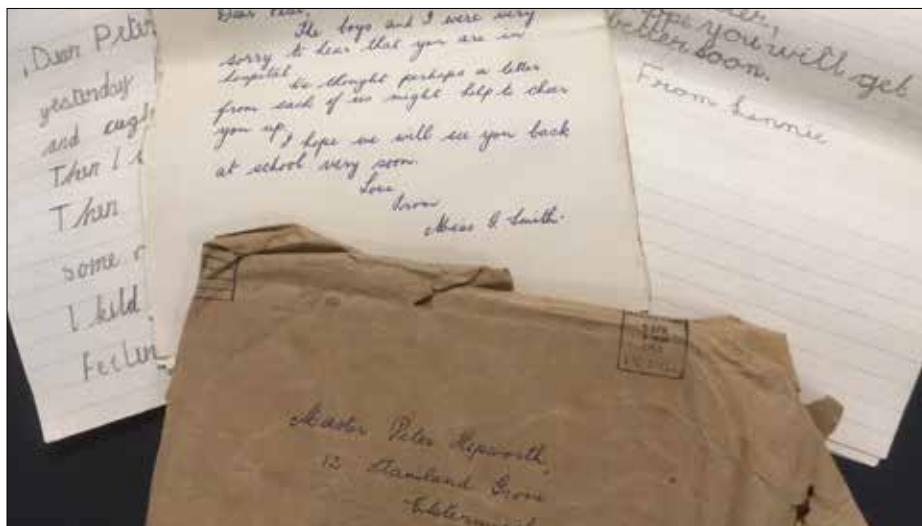 Dear Peter
yesterday
and
Then I
Then
some
I kild
Feelin
Dear Peter,
The boys and I were very
sorry to hear that you are in
hospital.
We thought perhaps a letter
from each of us might help to cheer
you up.
I hope we will see you back
at school very soon.
Love
from
Miss J. Smith.
you will get
better soon.
From Linnie
Master Peter Hepworth,
12 Staniland Grove
Elsternwick